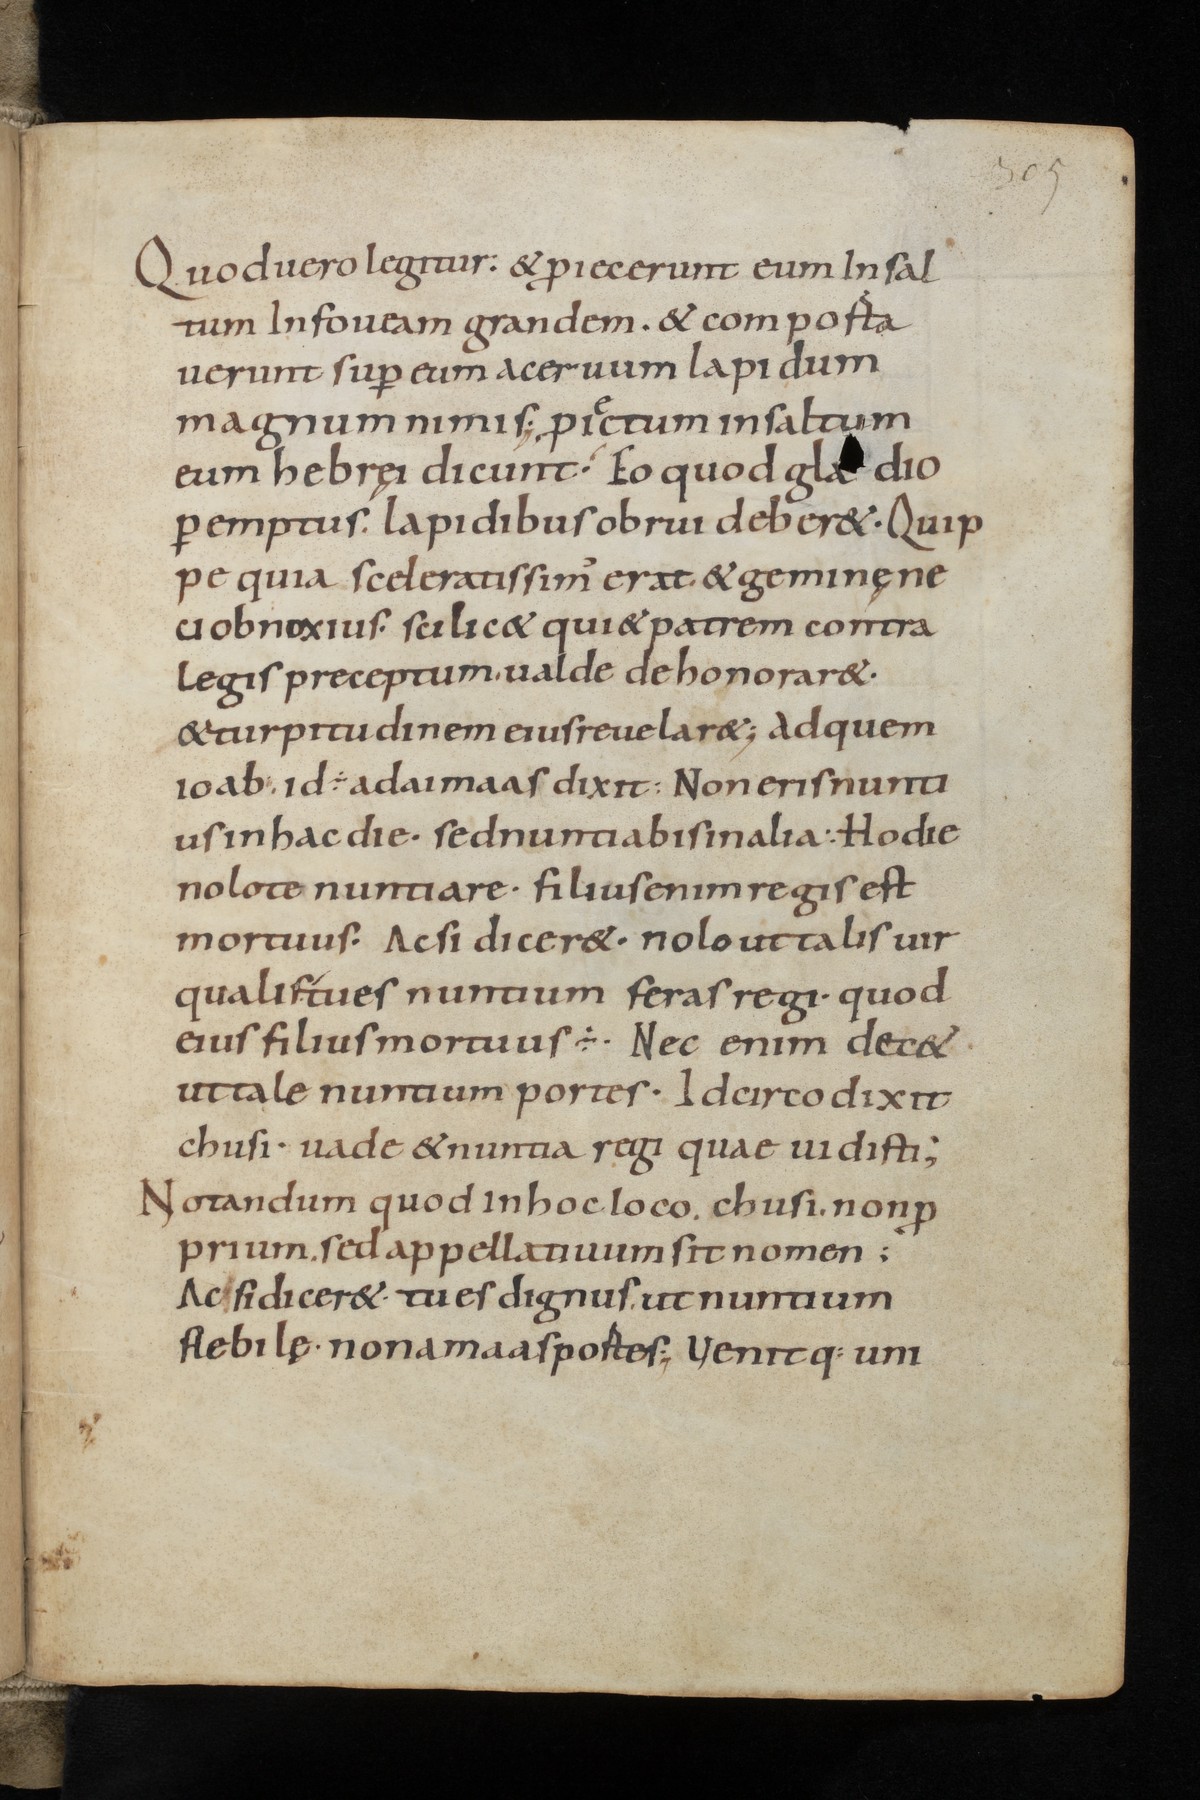 305
Quod uero legitur: & ꝓiecerunt eum In sal
tum In foueam grandem. & comportᷓa
uerunt suꝑ eum aceruum lapidum
magnum nimis; ꝓiectum in saltum
eum hebręi dicunt. Eo quod gla dio
ꝑemptus. lapidibus obrui deber&. Quip
pe quia sceleratissim᾽ erat. & geminę ne
ci obnoxius. scilic& qui & patrem contra
legis preceptum. ualde dehonorar&.
& turpitudinem eius reuelar&; Ad quem
ioab. id÷ ad aimaas dixit: Non eris nunti
us in hac die. sed nuntiabis in alia: Hodie
nolo te nuntiare. filius enim regis est
mortuus. Ac si dicer&. nolo ut talis uir
qualis tu es nuntium feras regi. quod
eius filius mortuus ÷. Nec enim dec&
ut tale nuntium portes. Idcirco dixit
chusi. uade & nuntia regi quae uidisti;
Notandum quod in hoc loco. chusi. non ꝓ
prium. sed appellatiuum sit nomen;
Ac si dicer&. tu es dignus. ut nuntium
flebilę. non amaas portes; Uenitq: uni